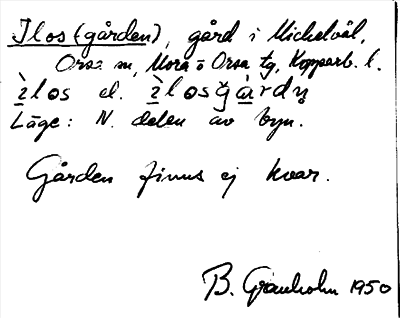 Ilos (gården), gård i Mickelvål,
Orsa sn, Mora o Orsa tg, Kopparb. l.
ìlos el. ìlosgàrdn̥
Läge: N. delen av byn.
Gården finns ej kvar.
B. Granholm 1950